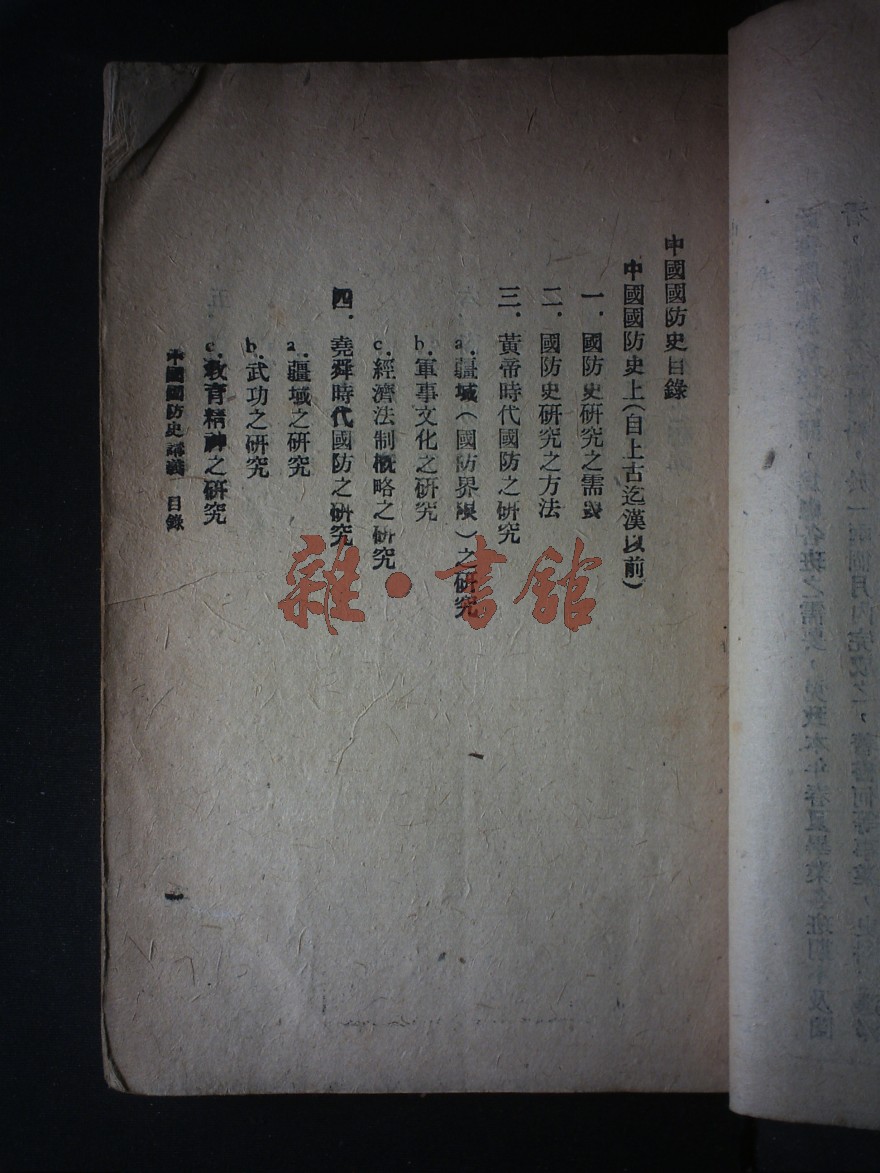 中國國防史目錄
中國國防史上(自上古迄漢以前)
一．國防史研究之需要
二．國防史研究之方法
三．黃帝時代國防之研究
a.疆域(國防界限)之研究
b.軍事文化之研究
c.經濟法制概略之研究
四．堯舜時代國防之研究
a.疆域之研究
b.武功之研究
c.教育精神之研究
中國國防史講義 目錄
一
雜·書館